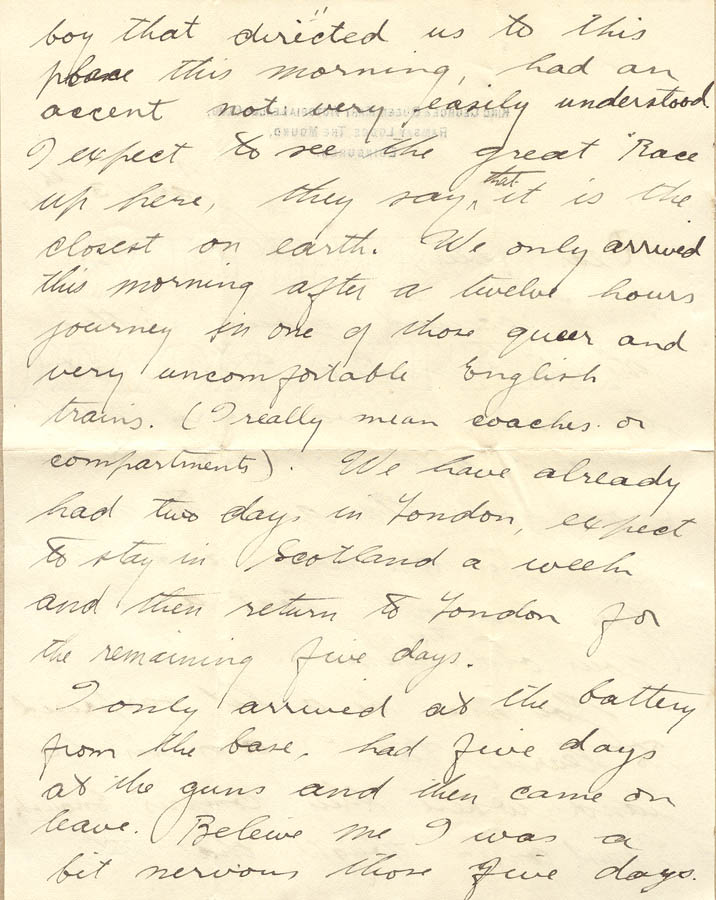 boy that directed us to this
place this morning, had an
accent not very easily understood
I expect to see the great "Race"
up here, they say that it is the
closest on earth. We only arrived
this morning after a twelve hours
journey in one of those queer and
very uncomfortable English
trains. (I really mean coaches or
compartments). We have already
had two days in London, expect
to stay in Scotland a week
and then return to London for
the remaining five days.
I only arrived at the battery
from the base, had five days
at the guns and then came on
leave. Beleive me I was a
bit nervous those five days.